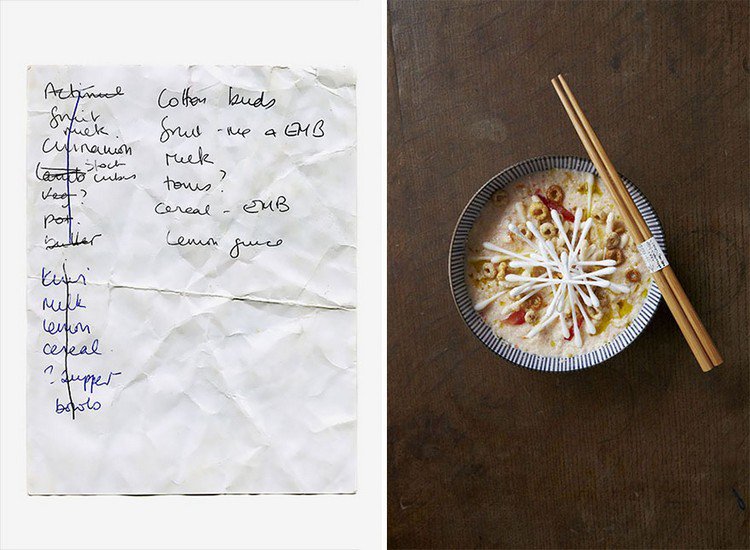 Actimel
fruit
milk.
Cinnamon
Lamb stock
cubes
veg?
pot.
butter
kiwi
milk
lemon
cereal.
? supper
bowls
Cotton buds
fruit - me & EMB
milk
toms?
cereal - EMB
lemon juice